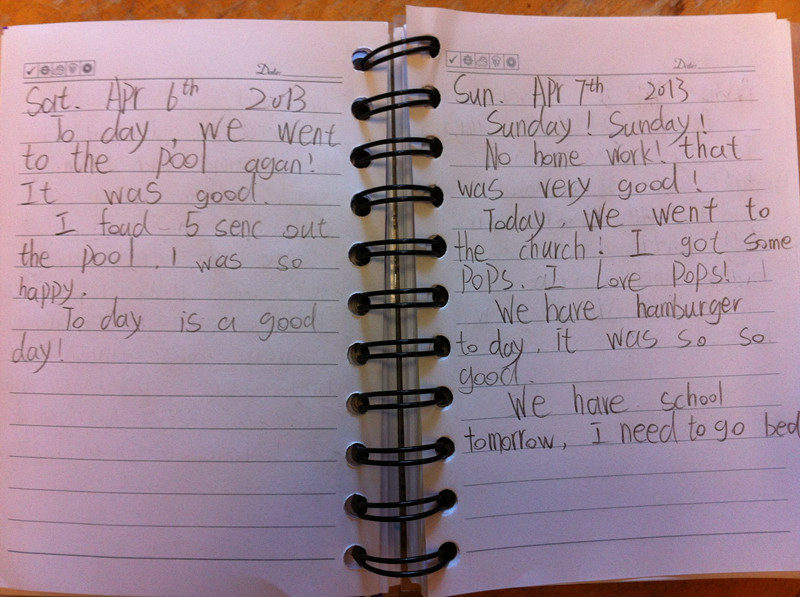 Date
Sat. Apr 6th 2013
To day, we went
to the pool agan!
It was good.
I foud 5 senc out
the pool. I was so
happy.
To day is a good
day!
Date
Sun. Apr 7th 2013
Sunday! Sunday!
No home work! that
was very good!
Today, we went to
the church! I got some
Pops. I Love Pops!
We have hamburger
to day. it was so so
good.
We have school
tomorrow, I need to go bed